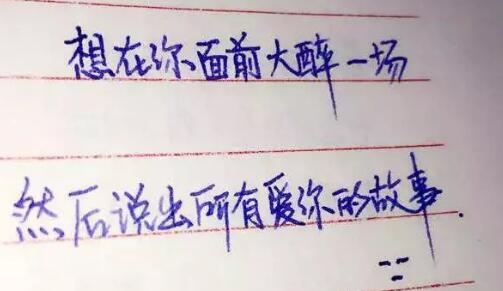 想在你面前大醉一场
然后说出所有爱你的故事.